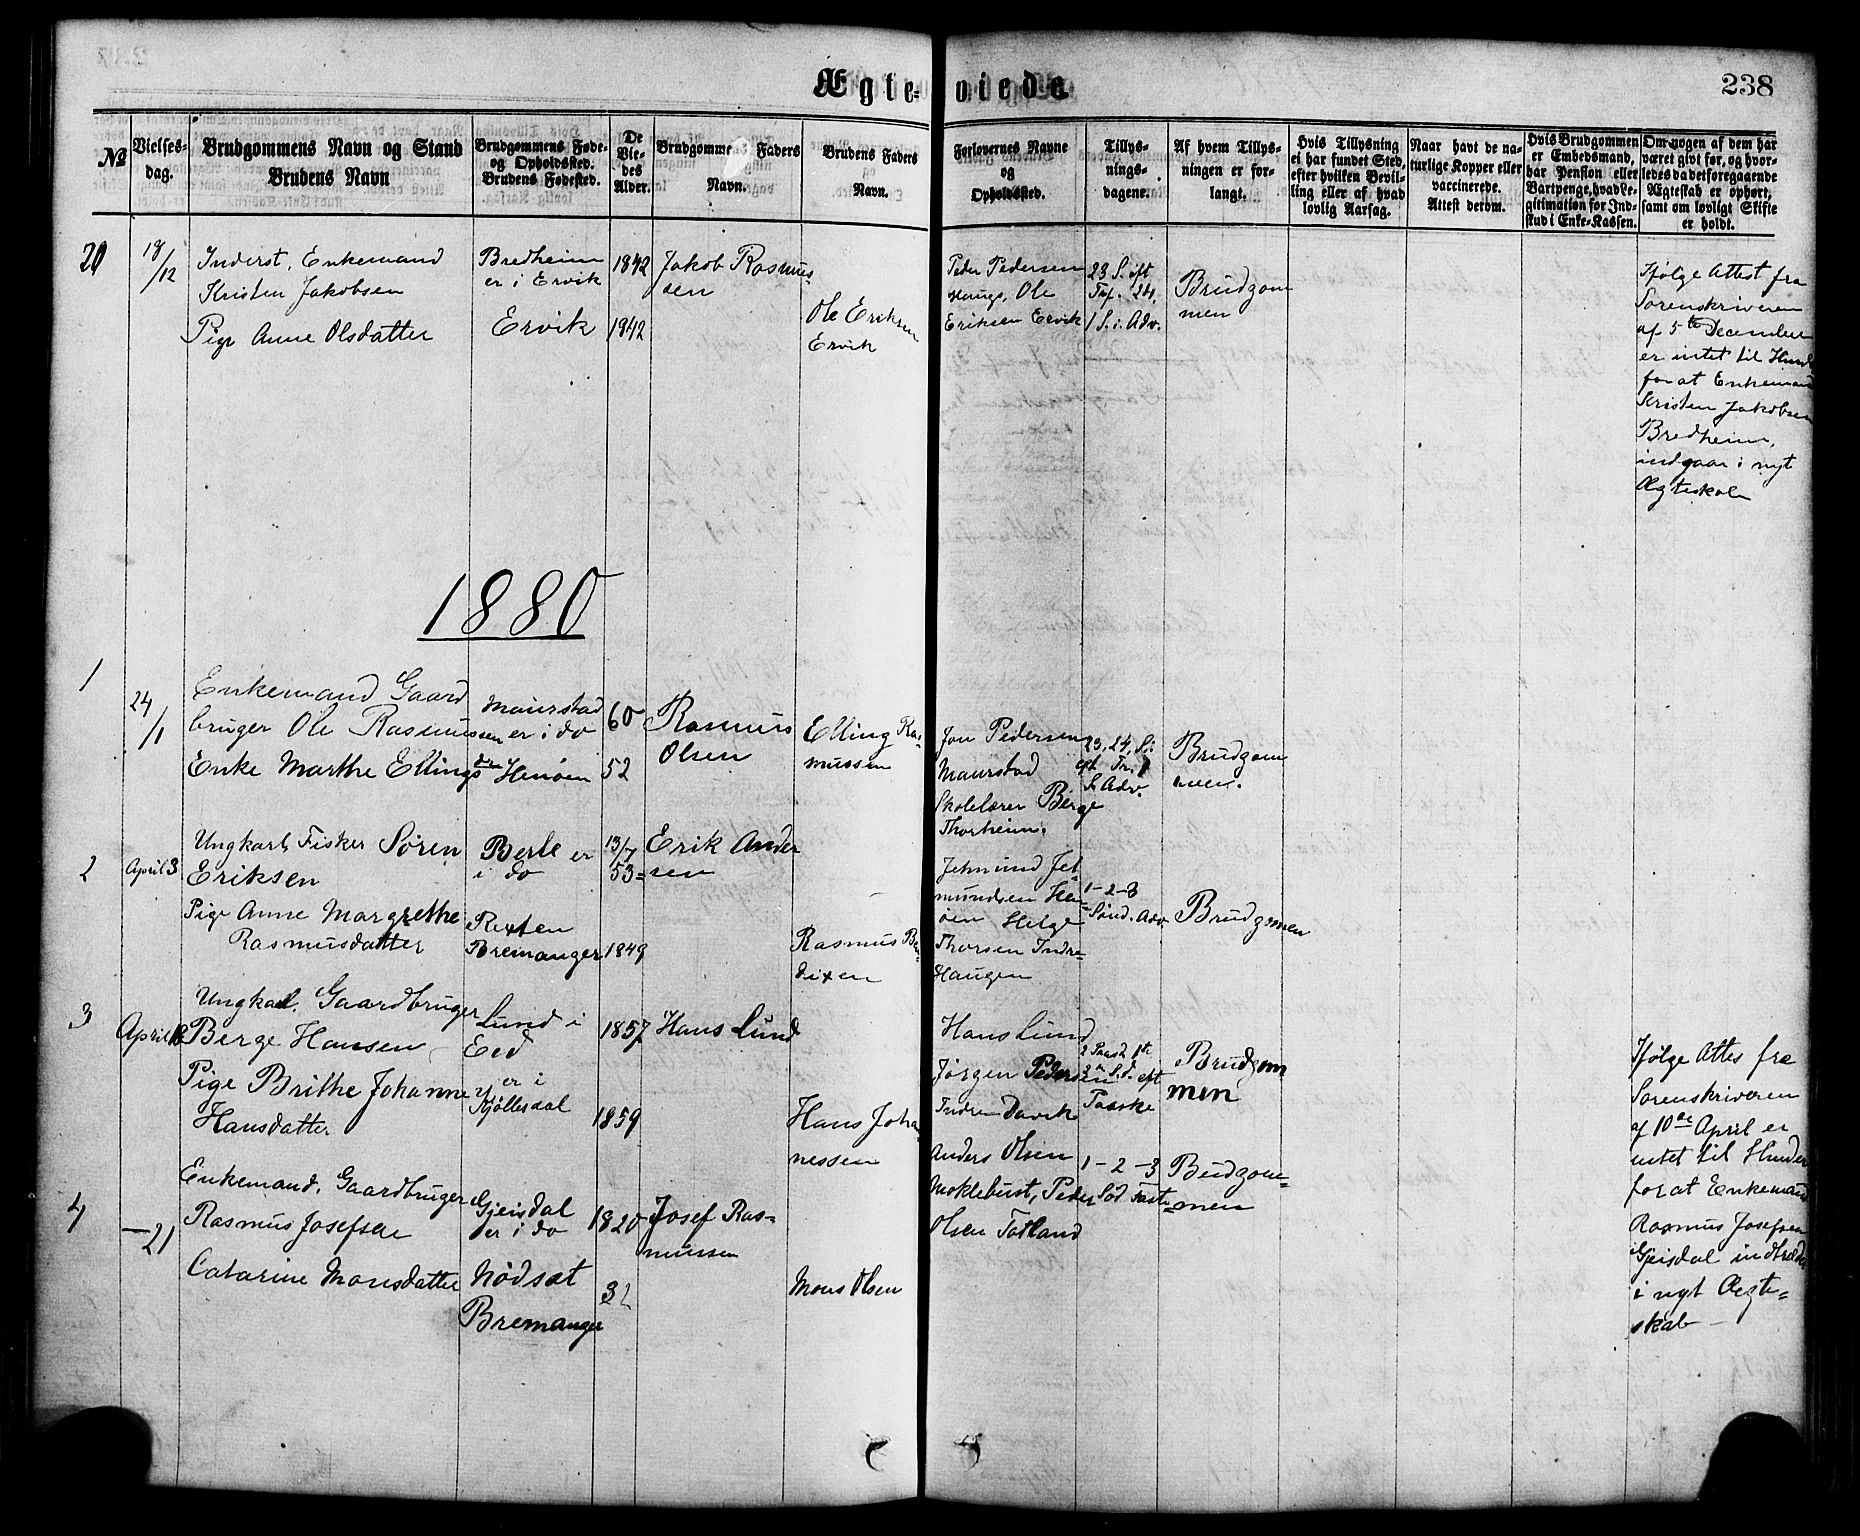 Ægte-viede.
238
№
Vielses-
dag.
Brudgommens Navn og Stand
Brudens Navn
Brudgommens Føde-
og Opholdssted.
Brudens Fødested.
De
Vie-
des
Alder.
Brudgommens Faders
Navn.
Brudens Faders
Navn.
Forlovernes Navne
og
Opholdssted.
Tillys-
nings-
dagene.
Af hvem Tillys-
ningen er for-
langt.
Hvis Tillysning
ei har fundet Sted,
efter hvilken Bevil-
ling eller af hvad
lovlig Aarsag.
Naar havt de na-
turlige Kopper eller
vaccinerede.
Attest derom.
Hvis Brudgommen
er Embedsmand,
har Pension eller
Vartpenge, hvad Le-
gitimation for Ind-
skud i Enke-Kassen.
Om nogen af dem har
været givt før, og hvor-
ledes da det foregaaende
Ægteskab er ophørt,
samt om lovligt Skifte
er holdt.
20
18/12
Inderst, Enkemand
Kristen Jakobsen
Pige Anne Olsdatter
Bredheim
er i Ervik
Ervik
1842
1842
Jakob Rasmus-
sen
Ole Eriksen
Ervik
Peder Pedersen
Hauge, Ole
Eriksen Ervik
23 S. eft
Trf. 24.
1 S. i Adv.
Brudgom
men
Ifølge Attest fra
Sorenskriveren
af 5te December
er intet til Hind
for at Enkemand
Kristen Jakobsen
Bredheim,
indgaar i nyt
Ægteskab
1880
1
24/1
Enkemand Gaard
bruger Ole Rasmussen
Enke Marthe Ellingsd
Maurstad
er i do
Henøen
60
52
Rasmus
Olsen
Elling Ras-
mussen
Jon Pedersen
Maurstad
Skolelærer Børge
Thorheim.
23, 24, S.
eft. Tr. 1
S. Adv.
Brudgom
men.
2
April 3
Ungkarl, Fisker Søren
Eriksen
Pige Anne Margrethe
Rasmusdatter
Berle er
i do
Rexten
Bremanger
13/7
53=
1849
Erik Ander
sen
Rasmus Ben-
dixen
Jetmund Jet
mundsen Hen-
øen Helge
Thorsen Indre-
Haugen
1-2-3
Sønd. Adv.
Brudgmen
3
April 18
Ungkarl, Gaardbruger
Berge Hansen
Pige Brithe Johanne
Hansdatter
Lund i
Eid
er i
Kjøllesdal
1857
1859
Hans Lund
Hans Joha-
nessen
Hans Lund
Jørgen Pedersen
Indre Davik
2 Paasd 1te
2n S.d. eft
Paaske
Brudgom
men
Ifølge Attes fra
Sorenskriveren
af 10de April er
intet til Hinder
for at Enkemand
Rasmus Josefsen
Gjeisdal indtræder
i nyt Ægte=
skab —
4
—21
Enkemand, Gaardbruger
Rasmus Josefsen
Catarine Monsdatter
Gjeisdal
er i do
Nødsæt
Bremanger
1820
32
Josef Ras-
mussen
Mons Olsen
Anders Olsen
Moklebust, Peder
Olsen Totland
1-2-3
Sød Faste
Brudgom=
men